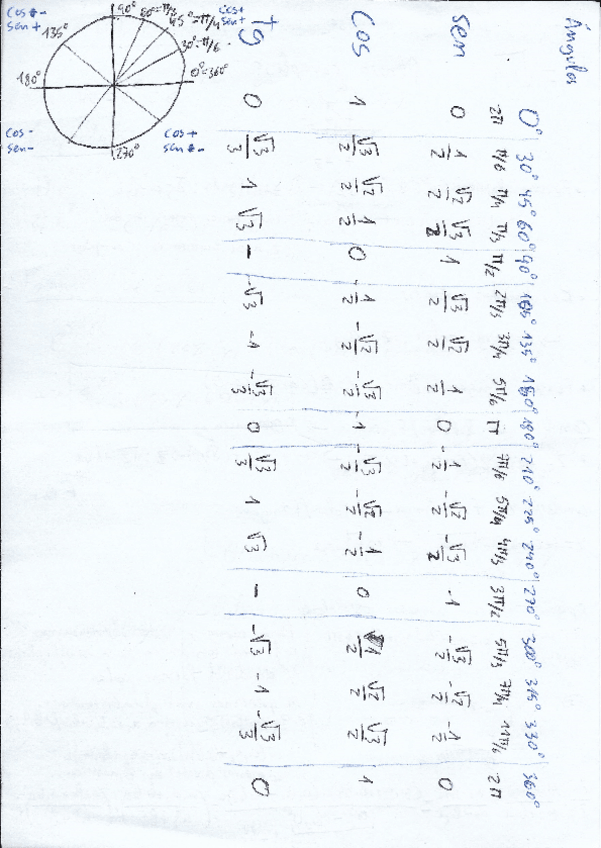 Ángulos 0° 30° 45° 60° 90° 135° 150° 180° 210° 225° 240° 270° 300° 315° 330° 360°
2π π/6 π/4 π/3 π/2 2π/3 3π/4 5π/6 π 7π/6 5π/4 4π/3 3π/2 5π/3 7π/4 11π/6 2π
sen 0 1/2 √2/2 √3/2 1 √3/2 √2/2 1/2 0 -1/2 -√2/2 -√3/2 -1 -√3/2 -√2/2 -1/2 0
cos 1 √3/2 √2/2 1/2 0 -1/2 -√2/2 -√3/2 -1 -√3/2 -√2/2 -1/2 0 1/2 √2/2 √3/2 1
tg 0 √3/3 1 √3 - -√3 -1 -√3/3 0 √3/3 1 √3 - -√3 -1 -√3/3 0
cos -
sen +
cos +
sen +
90°
60°=π/3
45°=π/4
30°=π/6
0°=360°
135°
180°
270°
cos -
sen -
cos +
sen -